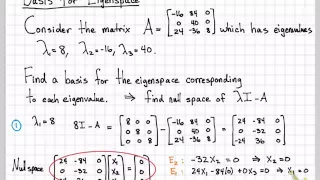 Basis for Eigenspace
Consider the matrix A = [-16 84 0; 0 40 0; 24 -36 8] which has eigenvalues
λ₁=8, λ₂=-16, λ₃=40.
Find a basis for the eigenspace corresponding
to each eigenvalue. ⇒ find null space of λI-A
① λ₁=8 8I-A = [8 0 0; 0 8 0; 0 0 8] - [-16 84 0; 0 40 0; 24 -36 8] = [24 -84 0; 0 -32 0; -24 36 0]
Null space [24 -84 0; 0 -32 0] [x₁; x₂] = [0; 0] E₂: -32x₂=0 ⇒ x₂=0
E₁: 24x₁-84(0)+0x₃=0 ⇒ x₁=0